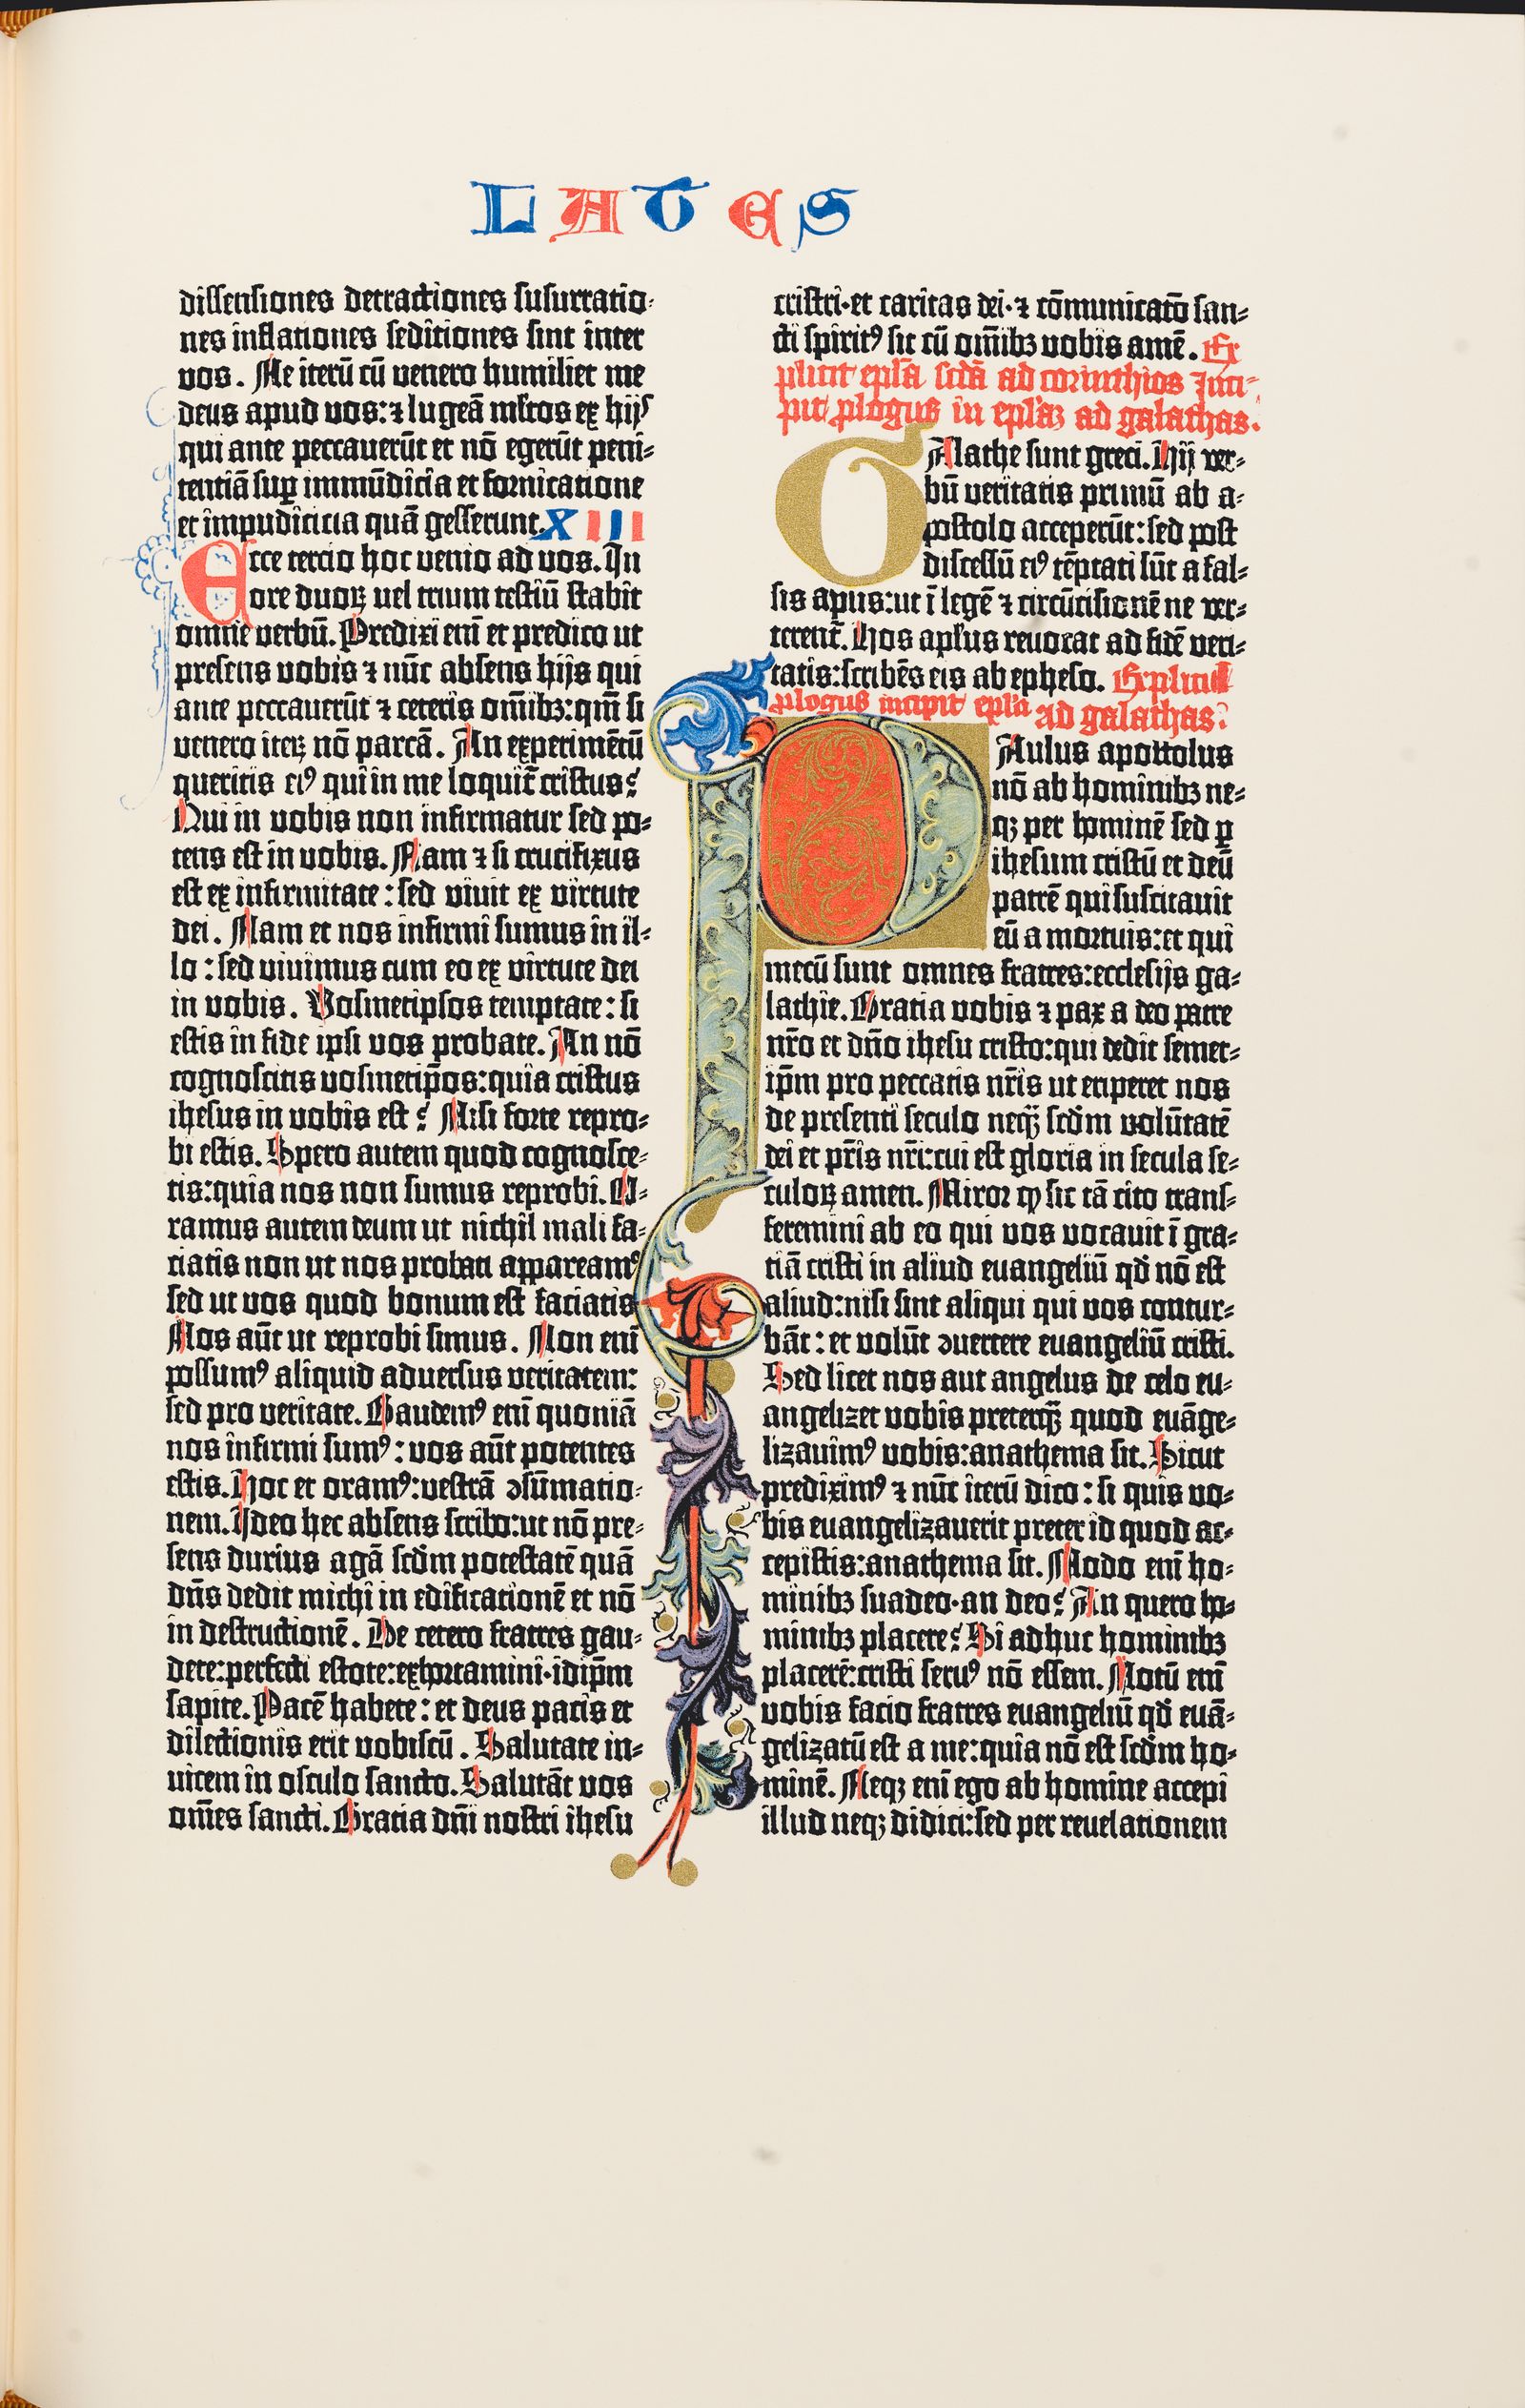 LATES
dissensiones detractiones susurratio-
nes inflationes seditiones sint inter
vos. Ne iterū cū venero humiliet me
deus apud vos: ⁊ lugeā ml̄tos ex hijs
qui ante peccaverūt et nō egerūt peni-
tentiā suꝑ immūdicia et fornicatione
et impudicicia quā gesserunt. XIII
Ecce tercio hoc venio ad vos. In
ore duoꝝ vel trium testiū stabit
omne verbū. Predixi em̄ et predico ut
presens vobis ⁊ nūc absens hijs qui
ante peccaverūt ⁊ ceteris om̄ibꝫ: qm̄ si
venero iteꝝ nō parcā. An experimētū
queritis eiꝰ qui in me loquit̄ cristus?
Qui in vobis non infirmatur sed po-
tens est in vobis. Nam ⁊ si crucifixus
est ex infirmitate: sed vivit ex virtute
dei. Nam et nos infirmi sumus in il-
lo: sed vivimus cum eo ex virtute dei
in vobis. Vosmetipsos temptate: si
estis in fide ipsi vos probate. An nō
cognoscitis vosmetip̄os: quia cristus
ihesus in vobis est? Nisi forte repro-
bi estis. Spero autem quod cognosce-
tis: quia nos non sumus reprobi. O-
ramus autem deum ut nichil mali fa-
ciatis non ut nos probati appareamꝰ
sed ut vos quod bonum est faciatis
Nos aūt ut reprobi simus. Non em̄
possumꝰ aliquid adversus veritatem:
sed pro veritate. Gaudemꝰ em̄ quoniā
nos infirmi sumꝰ: vos aūt potentes
estis. Hoc et oramꝰ: vestrā ꝯsūmatio-
nem. Ideo hec absens scribo: ut nō pre-
sens durius agā scd̄m potestatē quā
dn̄s dedit michi in edificationē et nō
in destructionē. De cetero fratres gau-
dete: perfecti estote: exhortamini · idip̄m
sapite. Pacē habete: et deus pacis et
dilectionis erit vobiscū. Salutate in-
vicem in osculo sancto. Salutāt vos
om̄es sancti. Gratia dn̄i nostri ihesu
cristi · et caritas dei · ⁊ cōmunicatō san-
cti spiritꝰ sit cū om̄ibꝫ vobis amē. Ex
plicit epl̄a scd̄a ad corinthios Inci-
pit ꝓlogus in epl̄aꝫ ad galathas.
Galathe sunt greci. Hij ver-
bū veritatis primū ab a-
postolo acceperūt: sed post
discessū eiꝰ tēptati sūt a fal-
sis apl̄is: ut ī legē ⁊ circūcisionē ne ver-
terent̄. Hos apl̄us revocat ad fidē veri-
tatis: scribēs eis ab epheso. Explicit
ꝓlogus incipit epl̄a ad galathas:
Paulus apostolus
nō ab hominibꝫ ne-
qꝫ per hominē sed ꝑ
ihesum cristū et deū
patrē qui suscitavit
eū a mortuis: et qui
mecū sunt omnes fratres: ecclesijs ga-
lathie. Gratia vobis ⁊ pax a deo patre
nr̄o et dn̄o ihesu cristo: qui dedit semet-
ip̄m pro peccatis nr̄is ut eriperet nos
de presenti seculo neqȝ̄ scd̄m volūtatē
dei et pr̄is nr̄i: cui est gloria in secula se-
culoꝝ amen. Miror ꝙ sic tā cito trans-
feremini ab eo qui vos vocavit ī gra-
tiā cristi in aliud evangeliū qd̄ nō est
aliud: nisi sint aliqui qui vos contur-
bāt: et volūt ꝯvertere evangeliū cristi.
Sed licet nos aut angelus de celo eu-
angelizet vobis preterqȝ̄ quod euāge-
lizavimꝰ vobis: anathema sit. Sicut
predixim⁹ ⁊ nūc iterū dico: si quis vo-
bis evangelizaverit preter id quod ac-
cepistis: anathema sit. Modo em̄ ho-
minibꝫ suadeo · an deo? An quero ho-
minibꝫ placere? Si adhuc hominibꝫ
placerē: cristi servꝰ nō essem. Notū em̄
vobis facio fratres evangeliū qd̄ euā-
gelizatū est a me: quia nō est scd̄m ho-
minē. Neqꝫ em̄ ego ab homine accepi
illud neqꝫ didici: sed per revelationem